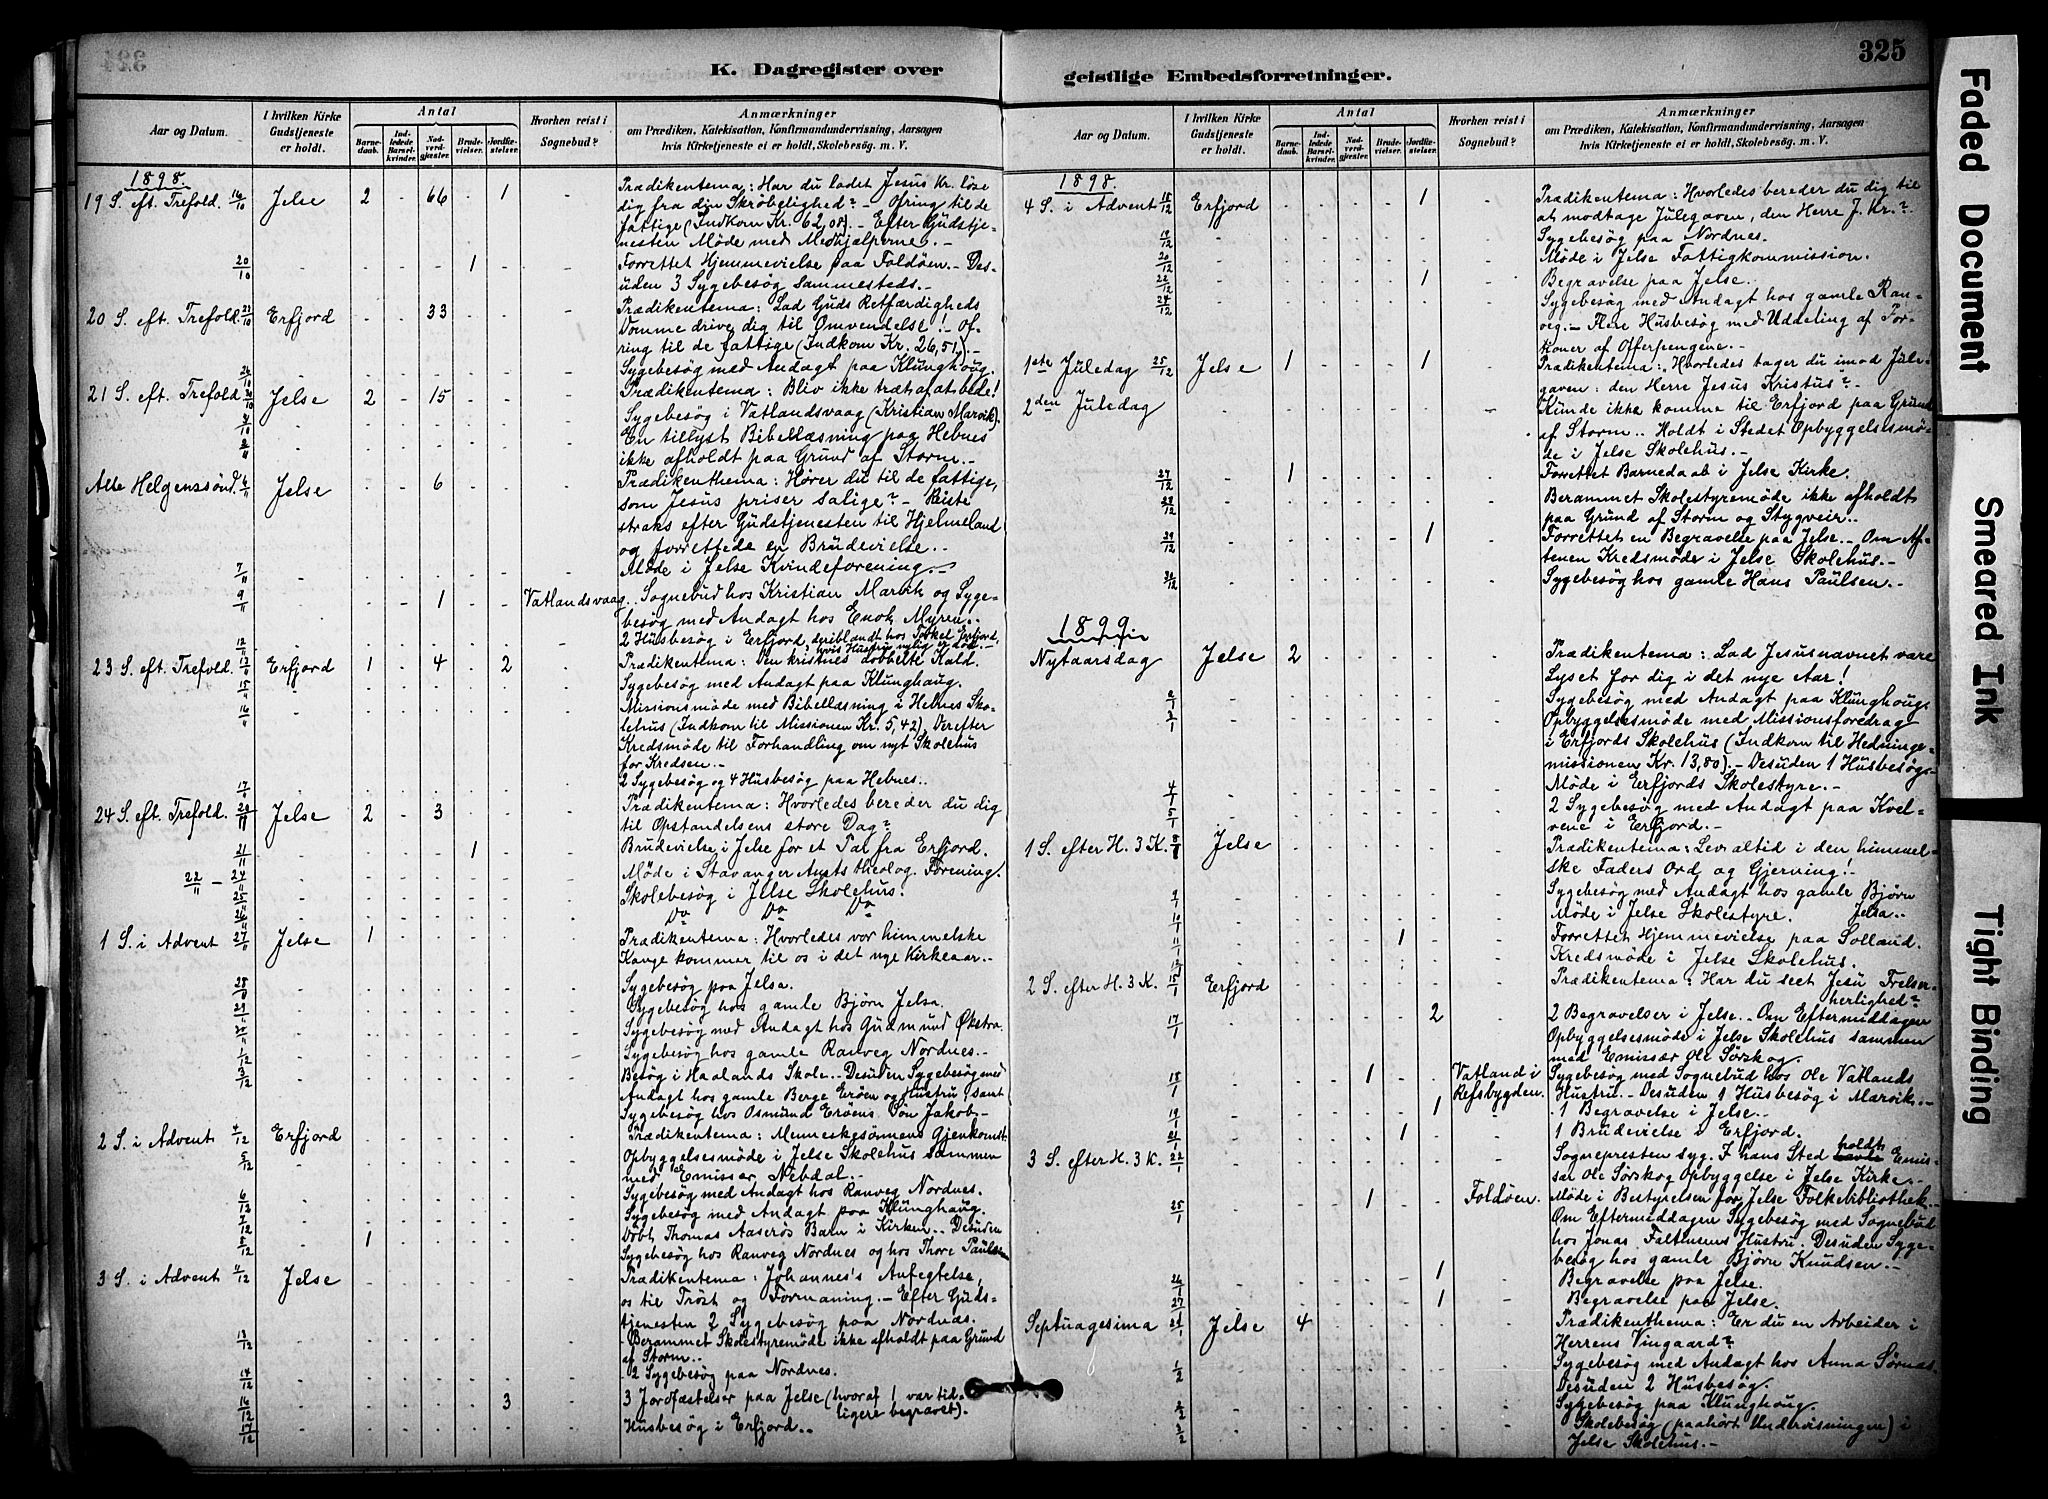 K. Dagregister over
geistlige Embedsforretninger.
325
Aar og Datum.
I hvilken Kirke Gudstjeneste er holdt.
Antal
Barnedaab.
Indledede Barselkvinder.
Nadverdgjæster.
Brudevielser.
Jordfæstelser.
Hvorhen reist i Sognebud?
Anmærkninger
om Prædiken, Katekisation, Konfirmandundervisning, Aarsagen
hvis Kirketjeneste ei er holdt, Skolebesøg. m. V.
1898.
19 S. eft. Trefold. 16/10 Jelse 2 - 66 - 1 - Prædikentema: Har du ladet Jesus Kr. løse
dig fra din Skrøbelighed? - Ofring til de
fattige (Indkom Kr. 62,08). - Efter Gudstje-
nesten Møde med Medhjælperne. -
20/10 - - - - 1 - - Forrettet Hjemmevielse paa Foldøen. - Des-
uden 3 Sygebesøg sammesteds. -
20 S. eft. Trefold. 23/10 Erfjord - - 33 - - - Prædikentema: Lad Guds Retfærdigheds
Domme drive dig til Omvendelse! - Of-
ring til de fattige (Indkom Kr. 26,51). -
Sygebesøg med Andagt paa Klunghaug.
21 S. eft. Trefold. 30/10 Jelse 2 - 15 - - - Prædikentema: Bliv ikke træt af at bede!
Sygebesøg i Vatlandsvaag (Kristian Marvik).
En tillyst Bibellæsning paa Hebnes
ikke afholdt paa Grund af Storm. -
Alle Helgenssønd. 6/11 Jelse - - 6 - - - Prædikenthema: Hører du til de fattige,
som Jesus priser salige? - Reiste
straks efter Gudstjenesten til Hjelmeland
og forrettede en Brudevielse. -
7/11 - Møde i Jelse Kvindeforening. -
9/11 - - - 1 - - Vatlandsvaag. Sognebud hos Kristian Marvik og Syge-
besøg med Andagt hos Enok Myren. -
12/11 2 Husbesøg i Erfjord, deriblandt hos Torkel Erfjord,
hvis Hustru nylig er død. -
23 S. eft. Trefold. 13/11 Erfjord 1 - 4 - 2 - Prædikentema: Den kristnes dobbelte Kald.
15/11 Sygebesøg med Andagt paa Klunghaug.
16/11 Missionsmøde med Bibellæsning i Hebnes Sko-
lehus (Indkom til Missionen Kr. 5,42). Derefter
Kredsmøde til Forhandling om nyt Skolehus
for Kredsen. -
17/11 2 Sygebesøg og 4 Husbesøg paa Hebnes. -
24 S. eft. Trefold. 20/11 Jelse 2 - 3 - - - Prædikentema: Hvorledes bereder du dig
til Opstandelsens store Dag?
21/11 - - - - 1 - - Brudevielse i Jelse for et Par fra Erfjord.
22/11 - 24/11 Møde i Stavanger Amts theolog. Forening.
25/11 Skolebesøg i Jelse Skolehus.
26/11 Do Do Do
1 S. i Advent 27/11 Jelse 1 - - - - - Prædikentema: Hvorledes vor himmelske
Konge kommer til os i det nye Kirkeaar. -
28/11 Sygebesøg paa Jelsa.
29/11 Sygebesøg hos gamle Bjørn Jelsa.
Sygebesøg med Andagt hos Gudmund Økstra.
1/12 Sygebesøg hos gamle Ranveg Nordnes. -
3/12 Besøg i Haalands Skole. - Desuden Sygebesøg med
Andagt hos gamle Berge Erøen og Hustru, samt
Sygebesøg hos Osmund Erøens Søn Jakob. -
2 S. i Advent 4/12 Erfjord - - - - - - Prædikentema: Menneskesønnens Gjenkomst.
5/12 Opbyggelsesmøde i Jelse Skolehus sammen
med Emissær Nebdal. -
6/12 Sygebesøg med Andagt hos Ranveg Nordnes.
7/12 Sygebesøg med Andagt paa Klunghaug.
8/12 - 1 - - - - - Døbt Thomas Aaserøs Barn i Kirken. - Desuden
Sygebesøg hos Ranveg Nordnes og hos Thore Paulsen
3 S. i Advent 11/12 Jelse - - - - - - Prædikentema: Johannes's Anfegtelse,
os til Trøst og Formaning. - Efter Guds-
tjenesten 2 Sygebesøg paa Nordnæs.
13/12 Berammet Skolestyremøde ikke afholdt paa Grund
af Storm. -
14/12 2 Sygebesøg paa Nordnes.
16/12 - - - - - 3 - 3 Jordfæstelser paa Jelse (hvoraf 1 var tid-
ligere begravet).
17/12 Husbesøg i Erfjord. -
Aar og Datum.
I hvilken Kirke Gudstjeneste er holdt.
Antal
Barnedaab.
Indledede Barselkvinder.
Nadverdgjæster.
Brudevielser.
Jordfæstelser.
Hvorhen reist i Sognebud?
Anmærkninger
om Prædiken, Katekisation, Konfirmandundervisning, Aarsagen
hvis Kirketjeneste ei er holdt, Skolebesøg. m. V.
1898.
4 S. i Advent 18/12 Erfjord - - - - 1 - Prædikentema: Hvorledes bereder du dig til
at modtage Julegaven, den Herre J. Kr.?
19/12 Sygebesøg paa Nordnes.
20/12 Møde i Jelse Fattigkommission.
22/12 - - - - - 1 - Begravelse paa Jelse.
24/12 Sygebesøg med Andagt hos gamle Ran-
veg. - Flere Husbesøg med Uddeling af Por-
tioner af Offerpengene. -
1ste Juledag 25/12 Jelse 1 - - - 1 - Prædikentema: Hvorledes tager du imod Jule-
gaven: den Herre Jesus Kristus? -
2den Juledag Kunde ikke komme til Erfjord paa Grund
af Storm. - Holdt i Stedet Opbyggelsesmø-
de i Jelse Skolehus. -
27/12 - 1 - - - - - Forrettet Barnedaab i Jelse Kirke.
28/12 Berammet Skolestyremøde ikke afholdt
paa Grund af Storm og Stygveir. -
29/12 - - - - - 1 - Forrettet en Begravelse paa Jelse. - Om Af-
tenen Kredsmøde i Jelse Skolehus. -
31/12 Sygebesøg hos gamle Hans Paulsen. -
1899
Nytaarsdag Jelse 2 - - - - - Prædikentema: Lad Jesusnavnet være
Lyset for dig i det nye Aar!
2/1 Sygebesøg med Andagt paa Klunghoug.
3/1 Opbyggelsesmøde med Missionsforedrag
i Erfjords Skolehus (Indkom til Hedninge-
missionen Kr. 13,80). - Desuden 1 Husbesøg. -
4/1 Møde i Erfjords Skolestyre. -
5/1 2 Sygebesøg med Andagt paa Kvel-
vene i Erfjord. -
1 S. efter H. 3 K. 8/1 Jelse - - - - - - Prædikentema: Lev altid i den himmel-
ske Faders Ord og Gjerning!
9/1 Sygebesøg med Andagt hos gamle Bjørn
Jelsa. -
10/1 Møde i Jelse Skolestyre.
11/1 - - - - 1 - - Forrettet Hjemmevielse paa Solland.
13/1 Kredsmøde i Jelse Skolehus.
2 S. efter H. 3 K. 15/1 Erfjord - - - - - - Prædikentema: Har du seet Jesu Frelser-
herlighed?
17/1 - - - - - 2 - 2 Begravelser i Jelse. - Om Eftermiddagen
Opbyggelsesmøde i Jelse Skolehus sammen
med Emissær Ole Sørskog.
18/1 - - - 1 - - Vatland i Refsbygden. Sygebesøg med Sognebud hos Ole Vatlands
Hustru. - Desuden 1 Husbesøg i Marvik. -
19/1 - - - - - 1 - 1 Begravelse i Jelse. -
21/1 - - - - 1 - - 1 Brudevielse i Erfjord.
3 S. efter H. 3 K. 22/1 Sognepresten syg. I hans Sted holdt Emis-
sær Ole Sørskog Opbyggelse i Jelse Kirke. -
25/1 - - - 1 - - Foldøen. Møde i Bestyrelsen for Jelse Folkebibliothek. -
Om Eftermiddagen Sygebesøg med Sognebud
hos Jonas Faltinens Hustru. Desuden Syge-
besøg hos gamle Bjørn Knudsen. -
26/1 - - - - - 1 - Begravelse paa Jelse.
27/1 - - - - - 1 - Begravelse paa Jelse.
Septuagesima 29/1 Jelse 4 - - - - - Prædikenthema: Er du en Arbeider i
Herrens Vingaard?
1/2 Sygebesøg med Andagt hos Anna Sørnas.
Desuden 2 Husbesøg.
2/2 Sygebesøg paa Klunghoug.
3/2 Skolebesøg (paahørt Undervisningen) i
Jelse Skolehus. -
Faded Document
Smeared Ink
Tight Binding